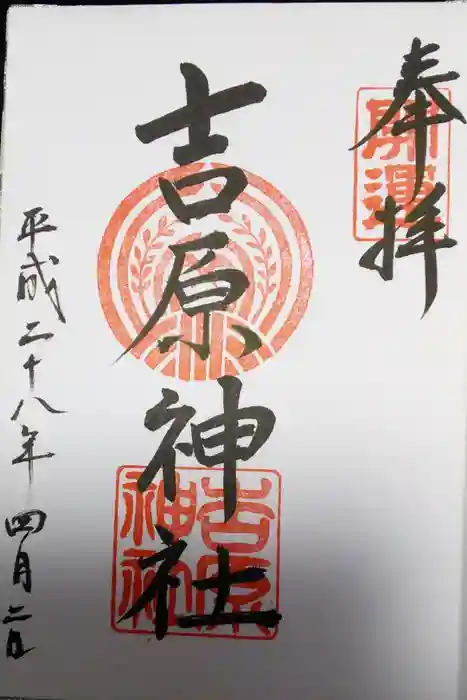 奉拝
開運
吉原神社
吉原神社
平成二十八年 四月二日